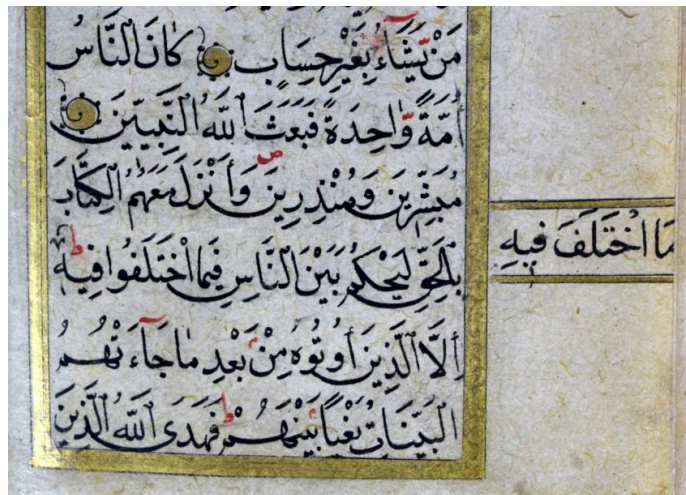 مَنْ يَّشَآءُ بِغَيْرِ حِسَابٍ كَانَ النَّاسُ
اُمَّةً وَّاحِدَةً فَبَعَثَ اللّٰهُ النَّبِيّٖنَ
مُبَشِّرِينَ وَمُنْذِرِينَ ص وَأَنْزَلَ مَعَهُمُ الْكِتَابَ
بِالْحَقِّ لِيَحْكُمَ بَيْنَ النَّاسِ فِيمَا اخْتَلَفُوا فِيهِ ط
مَا اخْتَلَفَ فِيهِ
اِلَّا الَّذِينَ أُوتُوهُ مِنْ بَعْدِ مَا جَآءَتْهُمُ
الْبَيِّنَاتُ بَغْيًا بَيْنَهُمْ ط فَهَدَى اللّٰهُ الَّذِينَ